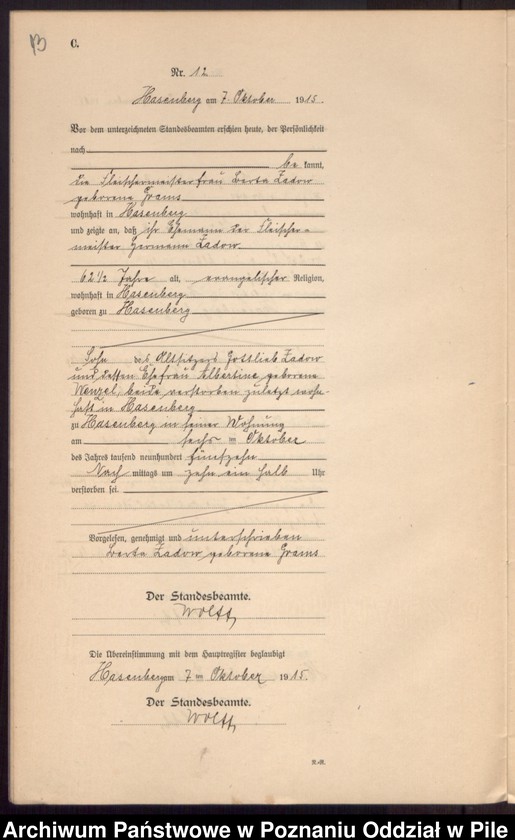 13 C.
Nr. 12
Hasenberg am 7. Oktober 1915.
Vor dem unterzeichneten Standesbeamten erschien heute, der Persönlichkeit
nach
be kannt,
die Fleischermeisterfrau Berta Zadow
geborene Grams
wohnhaft in Hasenberg
und zeigte an, daß ihr Ehemann der Fleischer-
meister Hermann Zadow
62 1/2 Jahre alt, evangelischer Religion,
wohnhaft in Hasenberg
geboren zu Hasenberg
Sohn des Altsitzers Gottlieb Zadow
und dessen Ehefrau Albertine geborene
Wenzel, beide verstorben zuletzt wohn-
haft in Hasenberg
zu Hasenberg in seiner Wohnung
am sechs ten Oktober
des Jahres tausend neunhundert fünfzehn
Nach mittags um zehn ein halb Uhr
verstorben sei.
Vorgelesen, genehmigt und unterschrieben
Berta Zadow geborene Grams
Der Standesbeamte.
Wolff
Die Übereinstimmung mit dem Hauptregister beglaubigt
Hasenberg am 7 ten Oktober 1915.
Der Standesbeamte.
Wolff
Archiwum Państwowe w Poznaniu Oddział w Pile